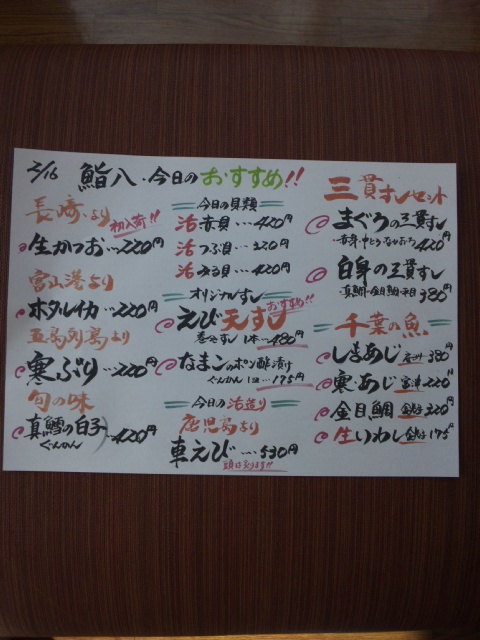 2/16 鮨八・今日のおすすめ!!
長崎より
初入荷!!
生かつお…220円
富山港より
ホタルイカ…220円
五島列島より
寒ぶり…220円
旬の味
真鱈の白子…420円
ぐんかん
今日の貝類
活赤貝…420円
活つぶ貝…320円
活みる貝…420円
オリジナルすし
おすすめ!!
えび天すし
巻きずし 1本…480円
なまこのポン酢漬け
ぐんかん 1コ…175円
今日の活造り
鹿児島より
車えび…530円
三貫すしセット
まぐろの三貫すし
420円
白身の三貫すし
真鯛・金目鯛 380円
千葉の魚
しまあじ 380円
寒・あじ 富津 220円
金目鯛 銚子 320円
生いわし 銚子 175円